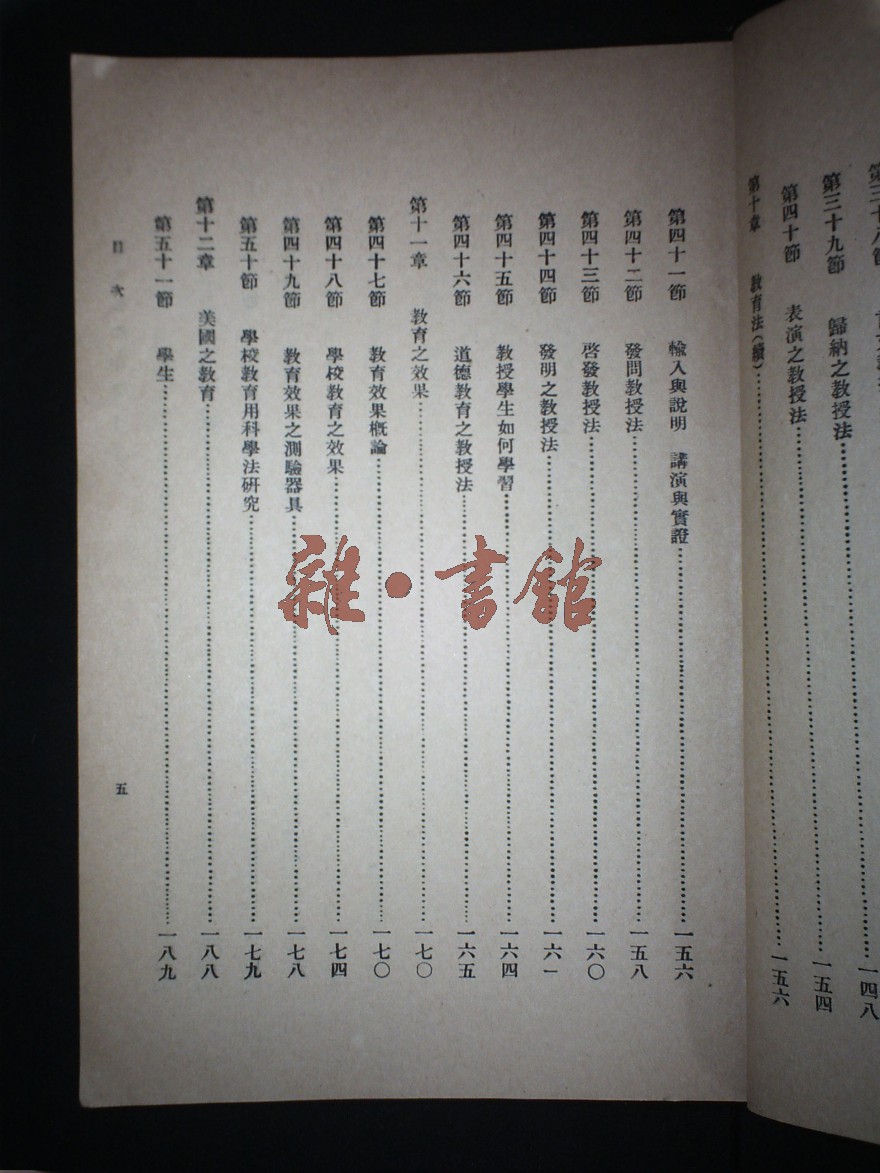 第三十八節
第三十九節 歸納之教授法……一四八
第四十節 表演之教授法……一五四
第十章 教育法(續)……一五六
第四十一節 輸入與說明 講演與實證……一五六
第四十二節 發問教授法……一五八
第四十三節 啓發教授法……一六〇
第四十四節 發明之教授法……一六一
第四十五節 教授學生如何學習……一六四
第四十六節 道德教育之教授法……一六五
第十一章 教育之效果……一七〇
第四十七節 教育效果概論……一七〇
第四十八節 學校教育之效果……一七四
第四十九節 教育效果之測驗器具……一七八
第五十節 學校教育用科學法研究……一七九
第十二章 美國之教育……一八八
第五十一節 學生……一八九
目次
五
雜·書館